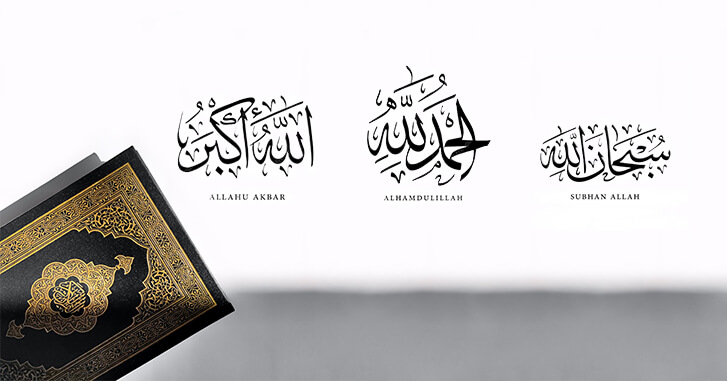 اللهُ أَكْبَرُ
ALLAHU AKBAR
الحَمْدُ لِلَّهِ
ALHAMDULILLAH
سُبْحَانَ اللهِ
SUBHAN ALLAH